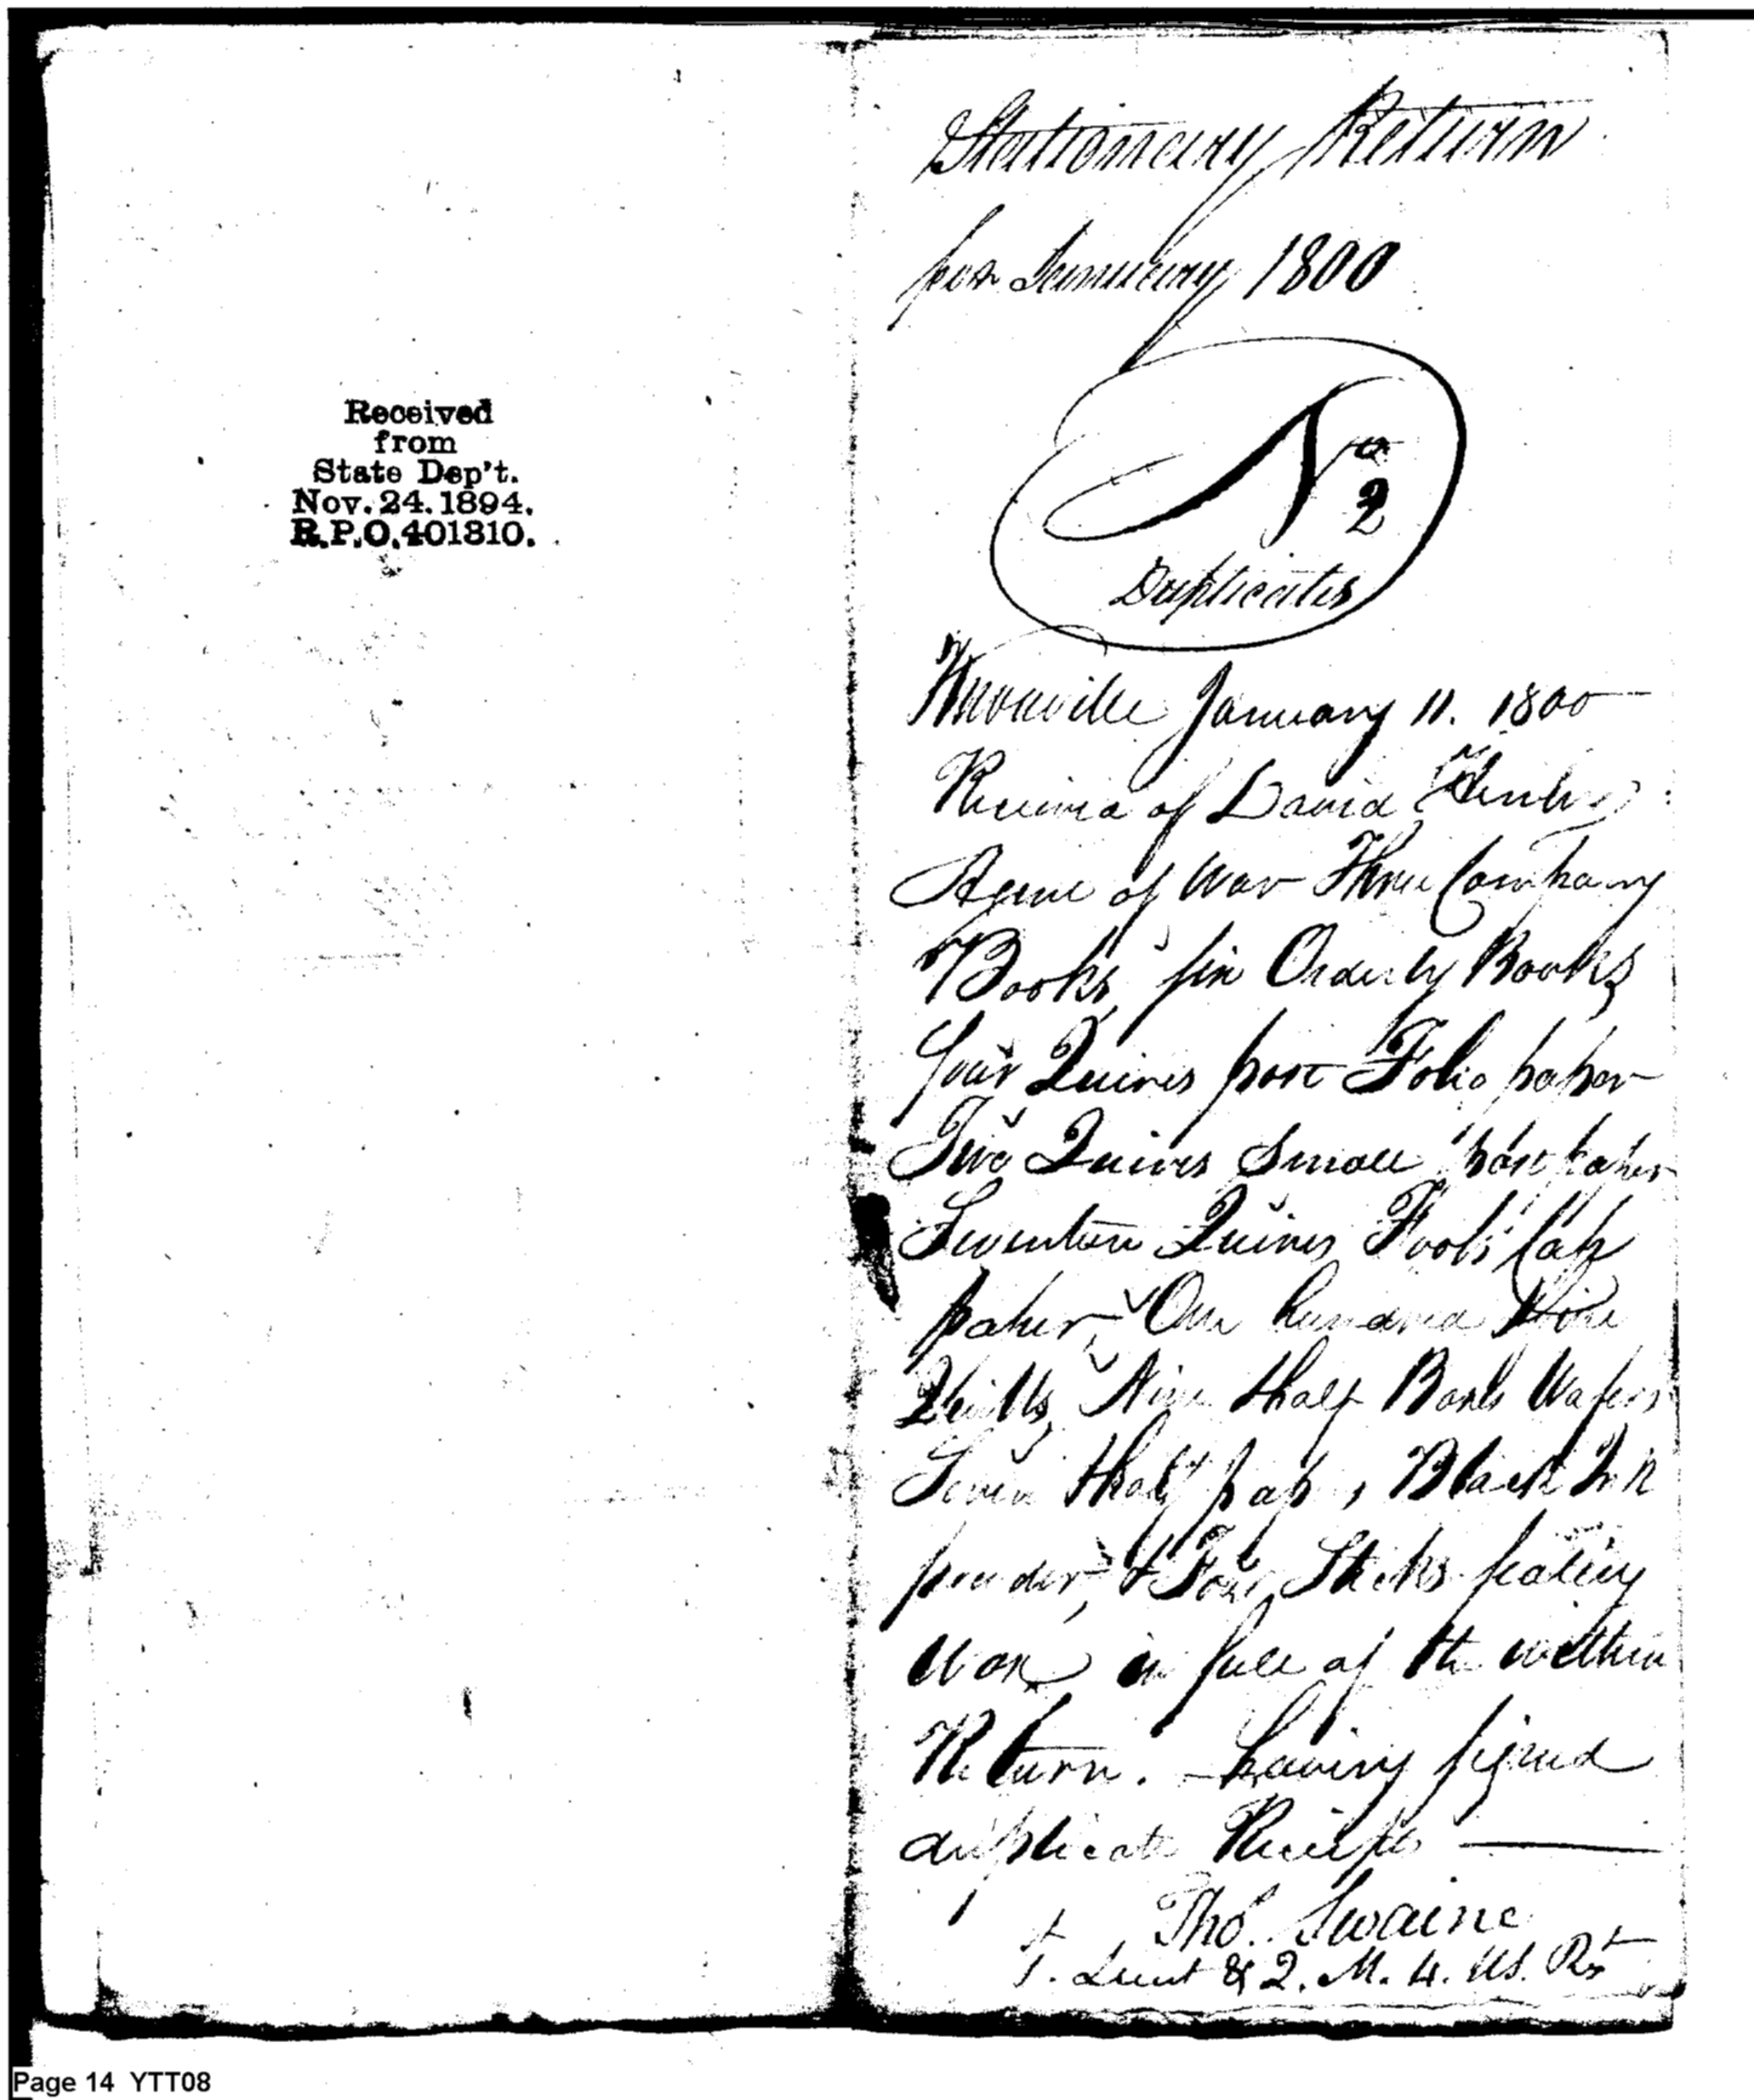 Received
from
State Dep't.
Nov. 24. 1894.
R.P.O. 401310.
Stationary Return
for January 1800
No
2
Duplicates
Knoxville January 11. 1800
Received of David Henley
Agent of War Three Company
Books, six Orderly Books
four Quires post Folio paper
Two Quires Small post paper
Seventeen Quires Fools Cap
paper, One hundred
Quills, Nine Half Boxes Wafers
Seven Half pap, Black Ink
powder, & Four Sticks sealing
wax, in full of the within
Return. having signed
duplicate Receipts
Tho. Swaine
1. Lieut & Q. M. 4. US. Rt
Page 14 YTT08